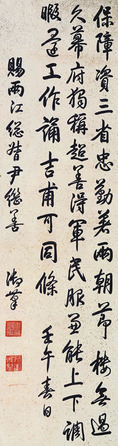 保障資三省忠勤著兩朝節樓無過
久幕府獨稱超善得軍民服兼能上下調
暇還工作誦吉甫可同條 壬午春日
賜兩江總督尹繼善 御筆